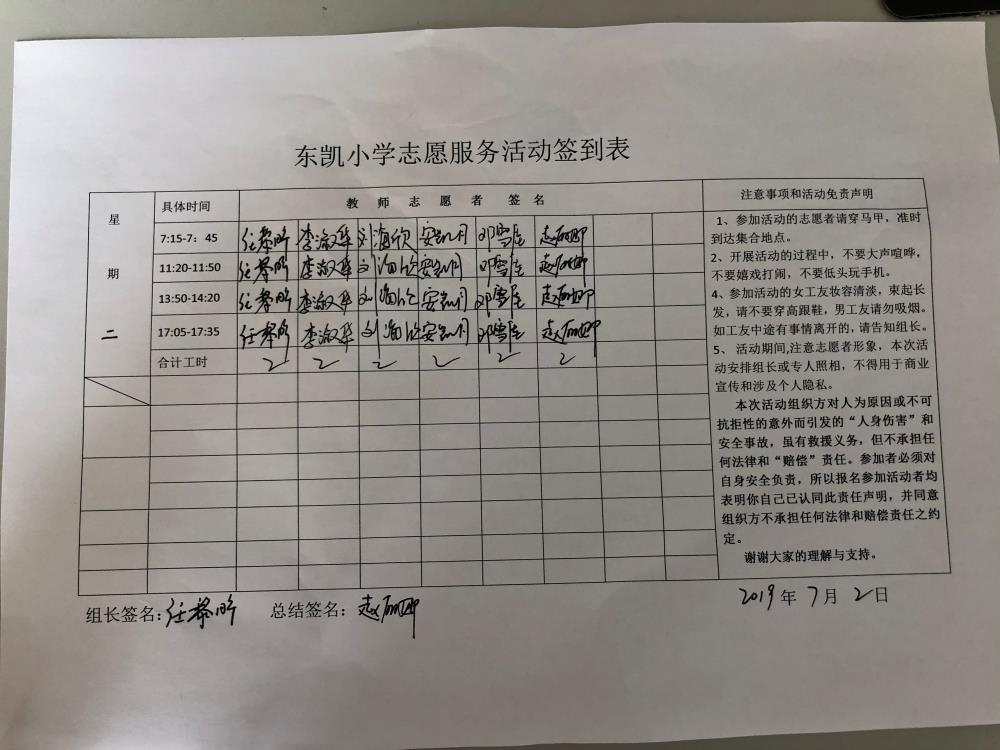 东凯小学志愿服务活动签到表
星期二
具体时间 教师志愿者 签名
7:15-7:45 李淑华 刘海欣 安凯月 邓雪莲
11:20-11:50 李淑华 刘海欣 安凯月 邓雪莲
13:50-14:20 李淑华 刘海欣 安凯月 邓雪莲
17:05-17:35 李淑华 刘海欣 安凯月 邓雪莲
合计工时 2 2 2 2 2 2
注意事项和活动免责声明
1、参加活动的志愿者请穿马甲，准时
到达集合地点。
2、开展活动的过程中，不要大声喧哗，
不要嬉戏打闹，不要低头玩手机。
4、参加活动的女工友妆容清淡，束起长
发，请不要穿高跟鞋，男工友请勿吸烟。
如工友中途有事情离开的，请告知组长。
5、 活动期间,注意志愿者形象，本次活
动安排组长或专人照相，不得用于商业
宣传和涉及个人隐私。
本次活动组织方对人为原因或不可
抗拒性的意外而引发的“人身伤害”和
安全事故，虽有救援义务，但不承担任
何法律和“赔偿”责任。参加者必须对
自身安全负责，所以报名参加活动者均
表明你自己已认同此责任声明，并同意
组织方不承担任何法律和赔偿责任之约
定。
谢谢大家的理解与支持。
组长签名: 总结签名:
2019年7月2日